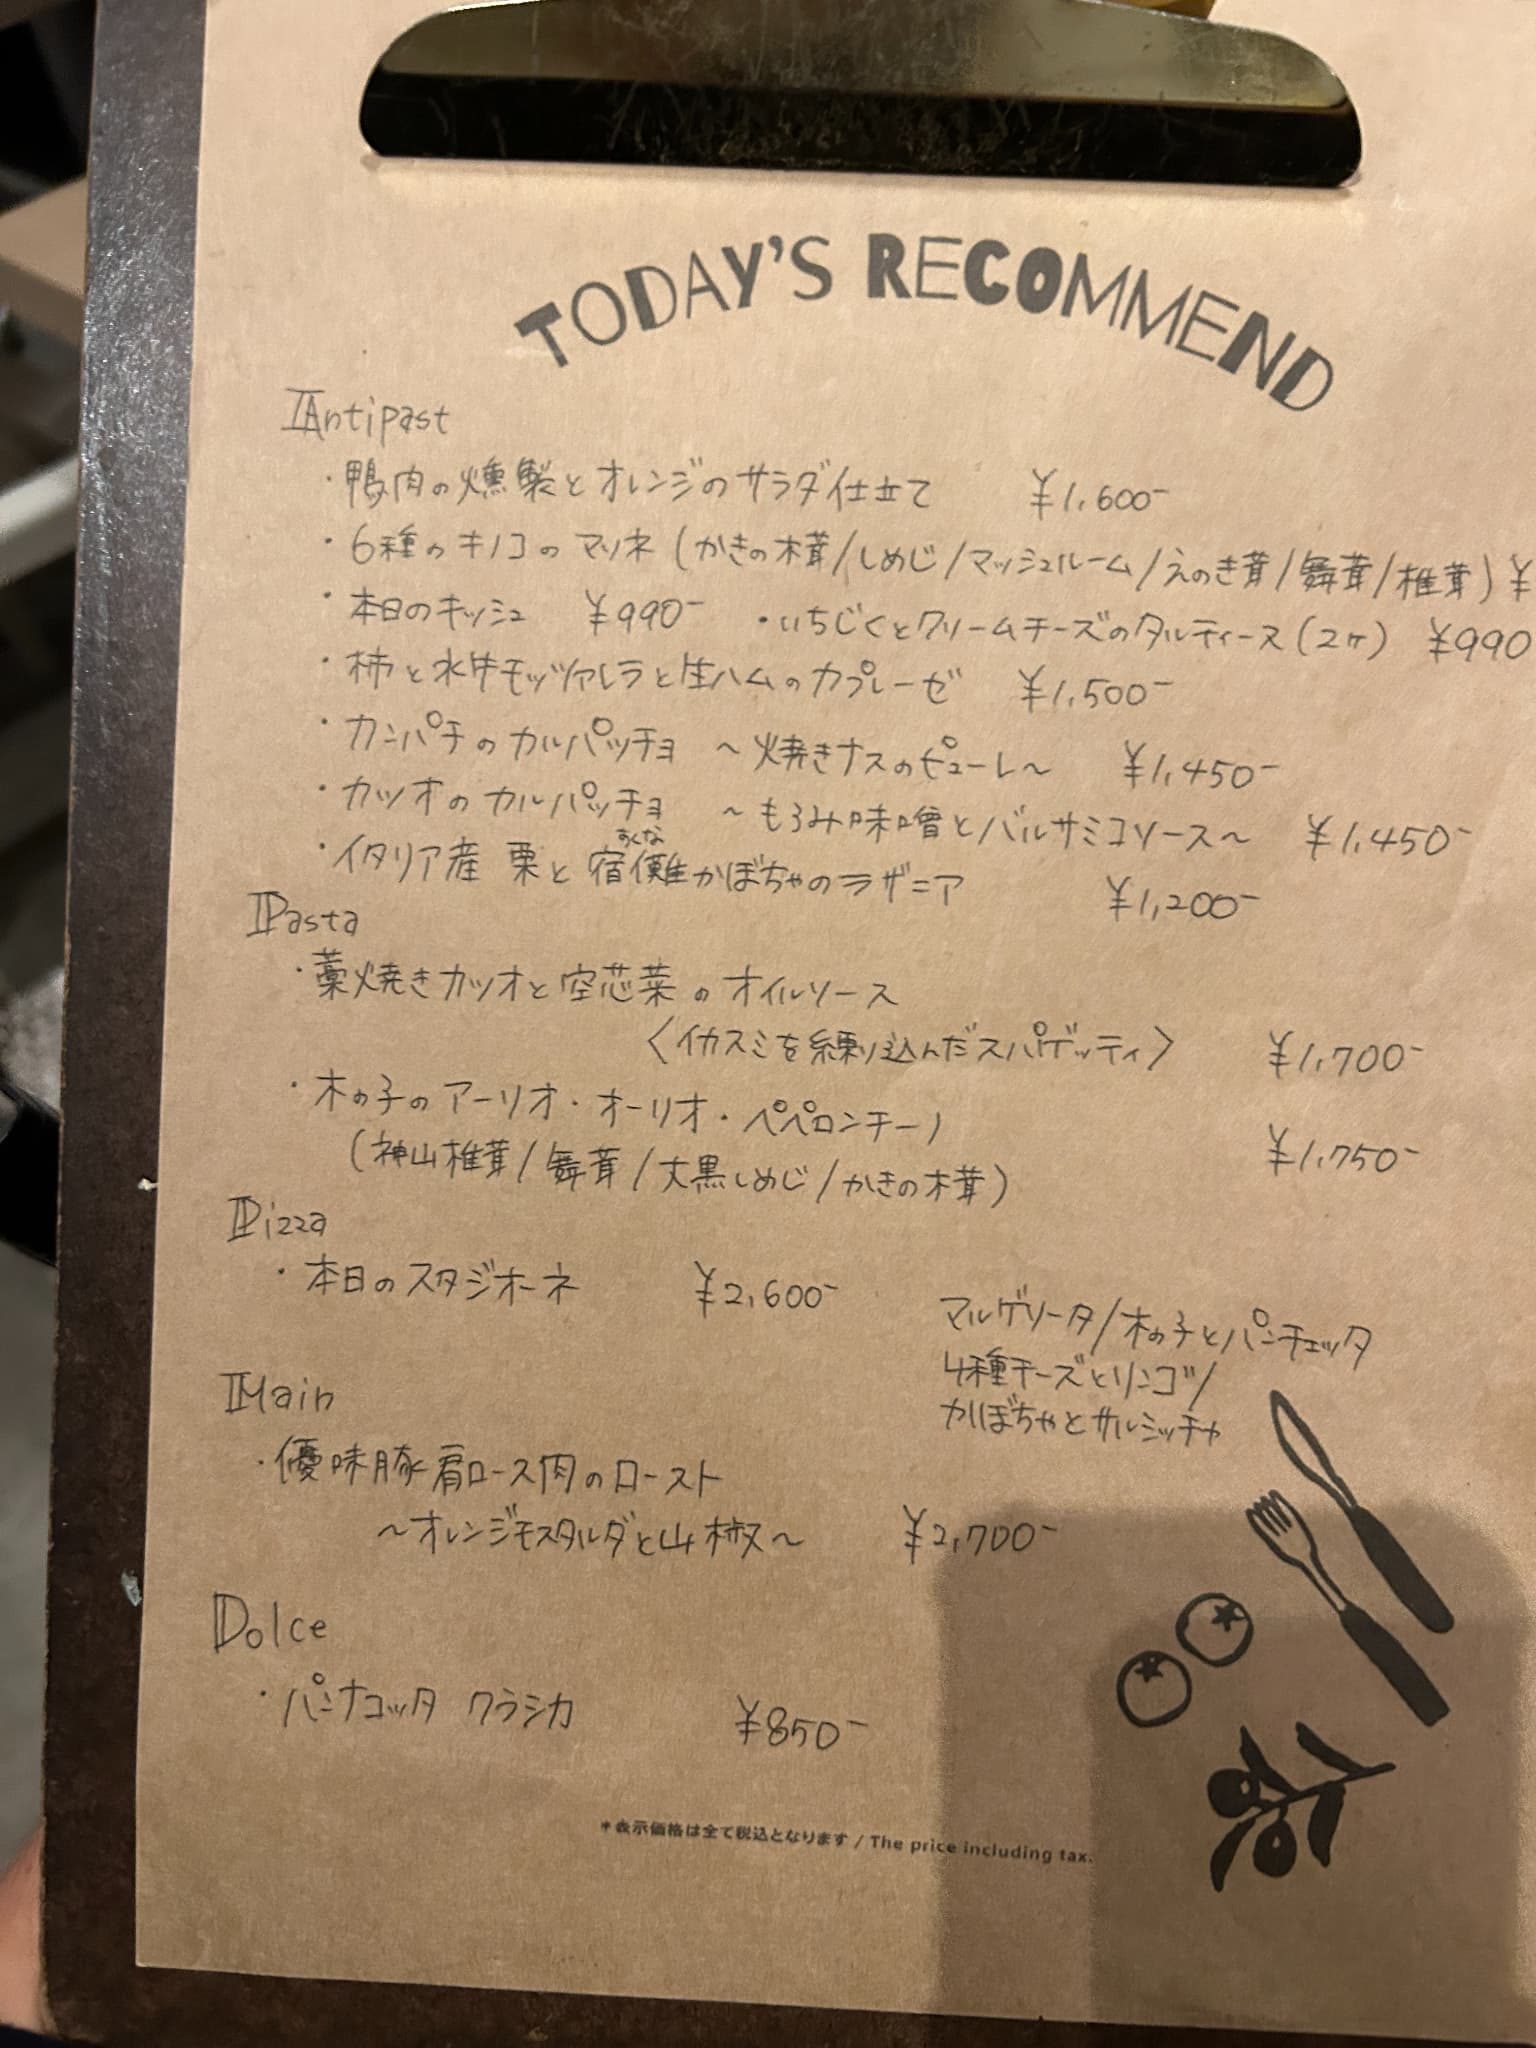 TODAY'S RECOMMEND
Antipast
・鴨肉の燻製とオレンジのサラダ仕立て ¥1,600-
・6種のキノコのマリネ (かきの木茸/しめじ/マッシュルーム/えのき茸/舞茸/椎茸) ¥
・本日のキッシュ ¥990- ・いちじくとクリームチーズのタルティーヌ(2ヶ) ¥990
・柿と水牛モッツァレラと生ハムのカプレーゼ ¥1,500-
・カンパチのカルパッチョ ～焼きナスのピューレ～ ¥1,450-
・カツオのカルパッチョ ～もろみ味噌とバルサミコソース～ ¥1,450-
すくな
・イタリア産 栗と宿儺かぼちゃのラザニア ¥1,200-
Pasta
・藁焼きカツオと空芯菜のオイルソース
〈イカスミを練り込んだスパゲッティ〉 ¥1,700-
・木の子のアーリオ・オーリオ・ペペロンチーノ
(神山椎茸/舞茸/大黒しめじ/かきの木茸) ¥1,750-
Pizza
・本日のスタジオーネ ¥2,600-
マルゲリータ/木の子とパンチェッタ
4種チーズとリンゴ/
かぼちゃとサルシッチャ
Main
・優味豚肩ロース肉のロースト
～オレンジモスタルダと山椒～ ¥2,700-
Dolce
・パンナコッタ クラシカ ¥850-
*表示価格は全て税込となります / The price including tax.